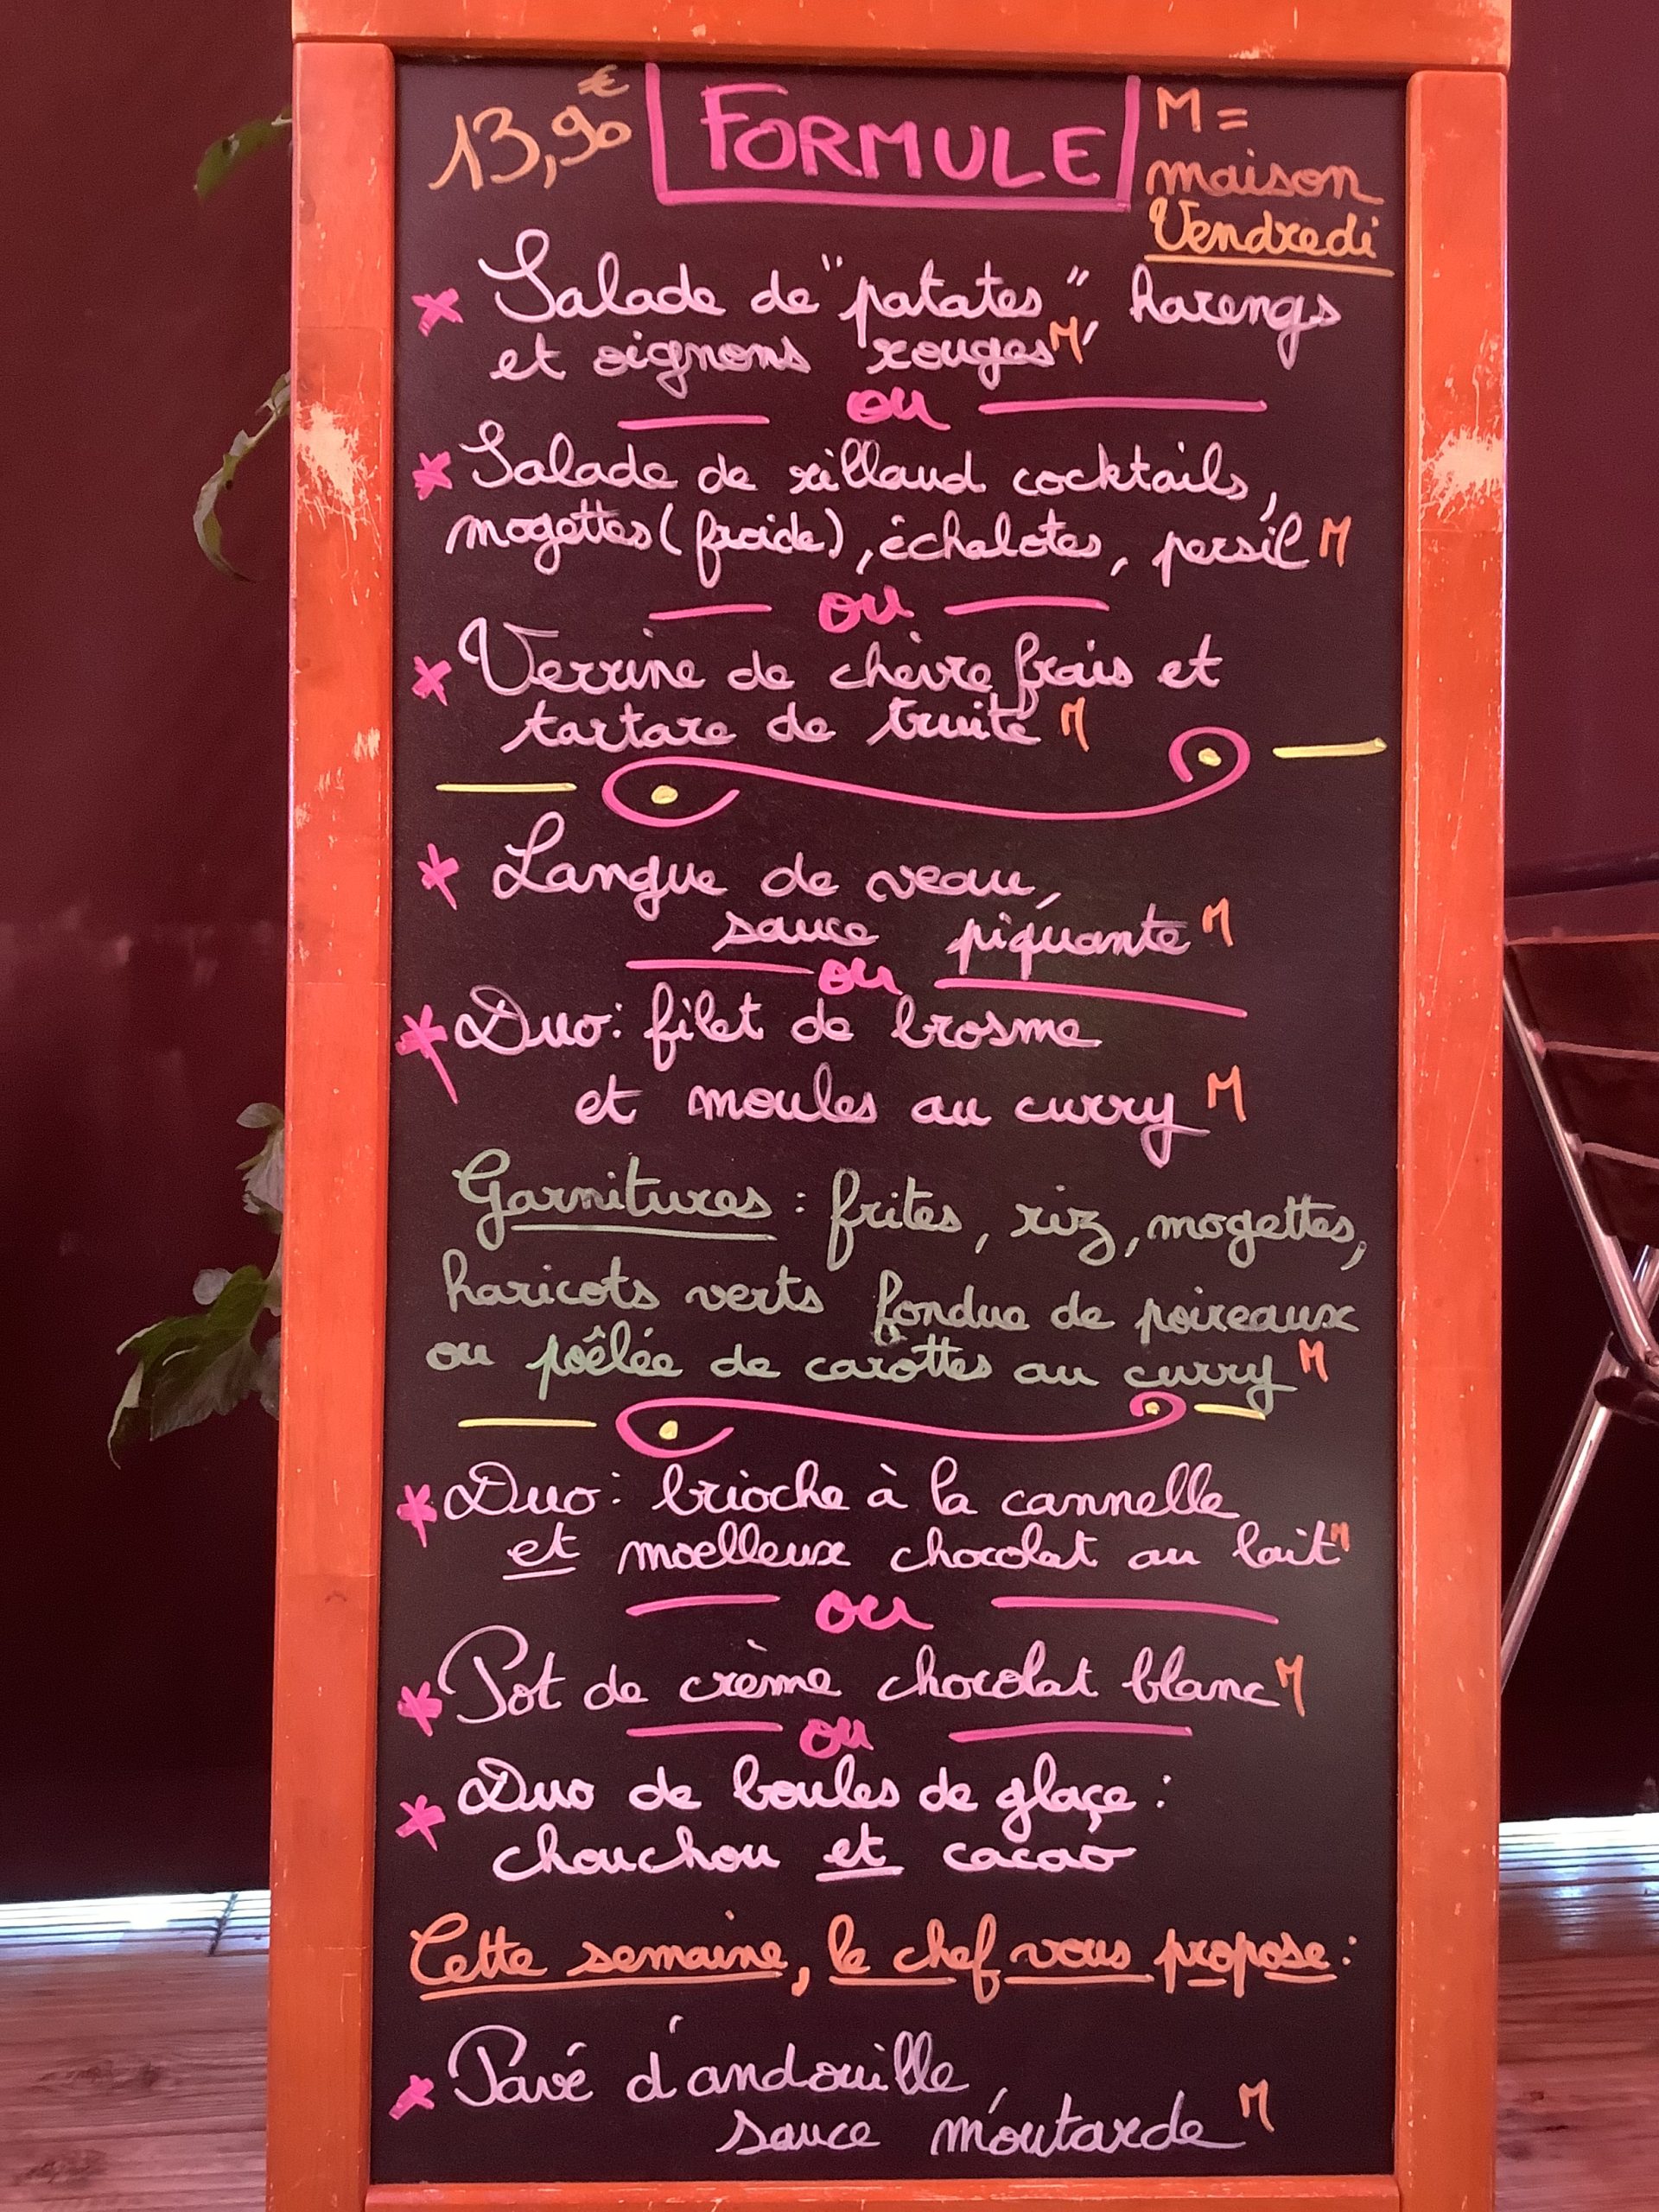 13,90€ FORMULE M =
maison
Vendredi
* Salade de "patates", harengs
et oignons rouges M
ou
* Salade de rillaud cocktails,
mogettes (froide), échalotes, persil M
ou
* Verrine de chèvre frais et
tartare de truite M
* Langue de veau,
sauce piquante M
ou
* Duo : filet de brosme
et moules au curry M
Garnitures : frites, riz, mogettes,
haricots verts fondue de poireaux
ou poêlée de carottes au curry M
* Duo : brioche à la cannelle
et moelleux chocolat au lait M
ou
* Pot de crème chocolat blanc M
ou
* Duo de boules de glaçe :
chouchou et cacao
Cette semaine, le chef vous propose :
* Pavé d'andouille,
sauce moutarde M